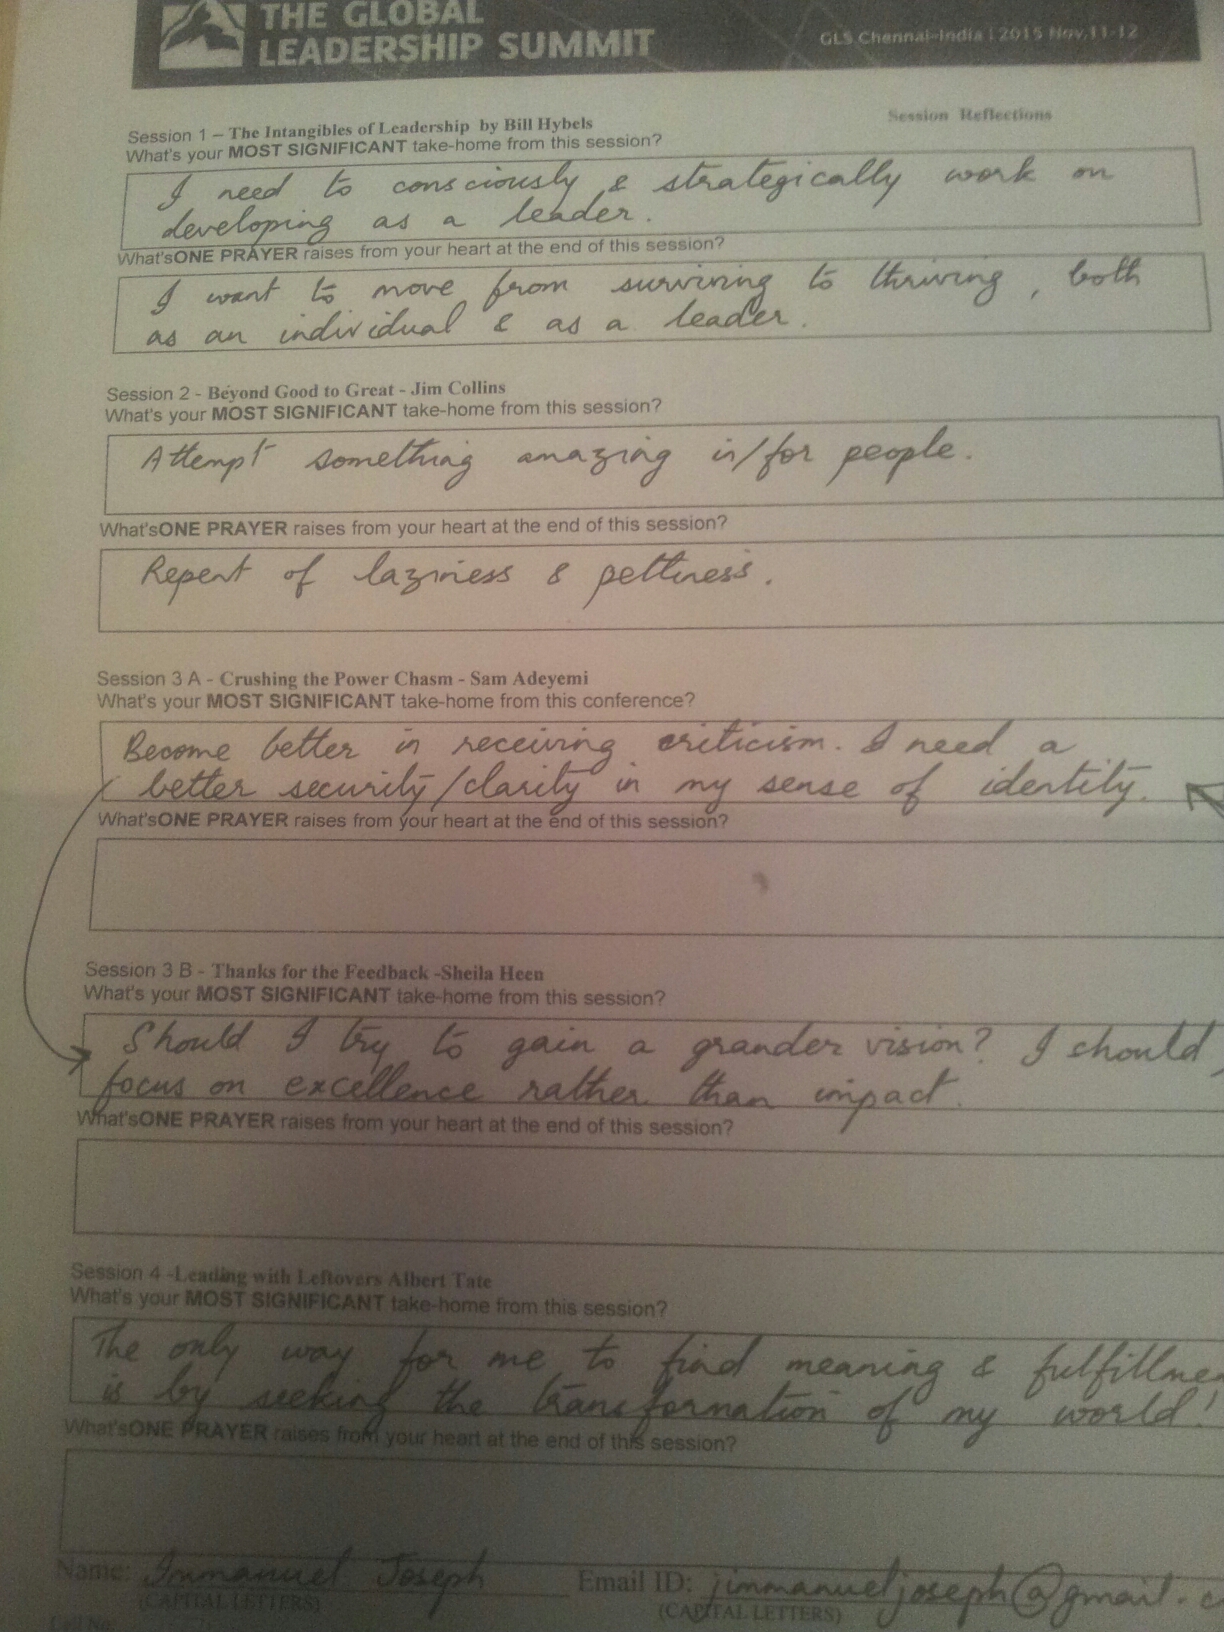 THE GLOBAL
LEADERSHIP SUMMIT
GLS Chennai-India | 2015 Nov,11-12
Session Reflections
Session 1 – The Intangibles of Leadership by Bill Hybels
What's your MOST SIGNIFICANT take-home from this session?
I need to consciously & strategically work on
developing as a leader.
What'sONE PRAYER raises from your heart at the end of this session?
I want to move from surviving to thriving, both
as an individual & as a leader.
Session 2 - Beyond Good to Great - Jim Collins
What's your MOST SIGNIFICANT take-home from this session?
Attempt something amazing in/for people.
What'sONE PRAYER raises from your heart at the end of this session?
Repent of laziness & pettiness.
Session 3 A - Crushing the Power Chasm - Sam Adeyemi
What's your MOST SIGNIFICANT take-home from this conference?
Become better in receiving criticism. I need a
better security/clarity in my sense of identity.
What'sONE PRAYER raises from your heart at the end of this session?
Session 3 B - Thanks for the Feedback -Sheila Heen
What's your MOST SIGNIFICANT take-home from this session?
Should I try to gain a grander vision? I should,
focus on excellence rather than impact.
What'sONE PRAYER raises from your heart at the end of this session?
Session 4 -Leading with Leftovers Albert Tate
What's your MOST SIGNIFICANT take-home from this session?
The only way for me to find meaning & fulfillme
is by seeking the transformation of my world!
What'sONE PRAYER raises from your heart at the end of this session?
Name: Immanuel Joseph Email ID: jimmanueljoseph@gmail.c
(CAPITAL LETTERS) (CAPITAL LETTERS)
Cell No: